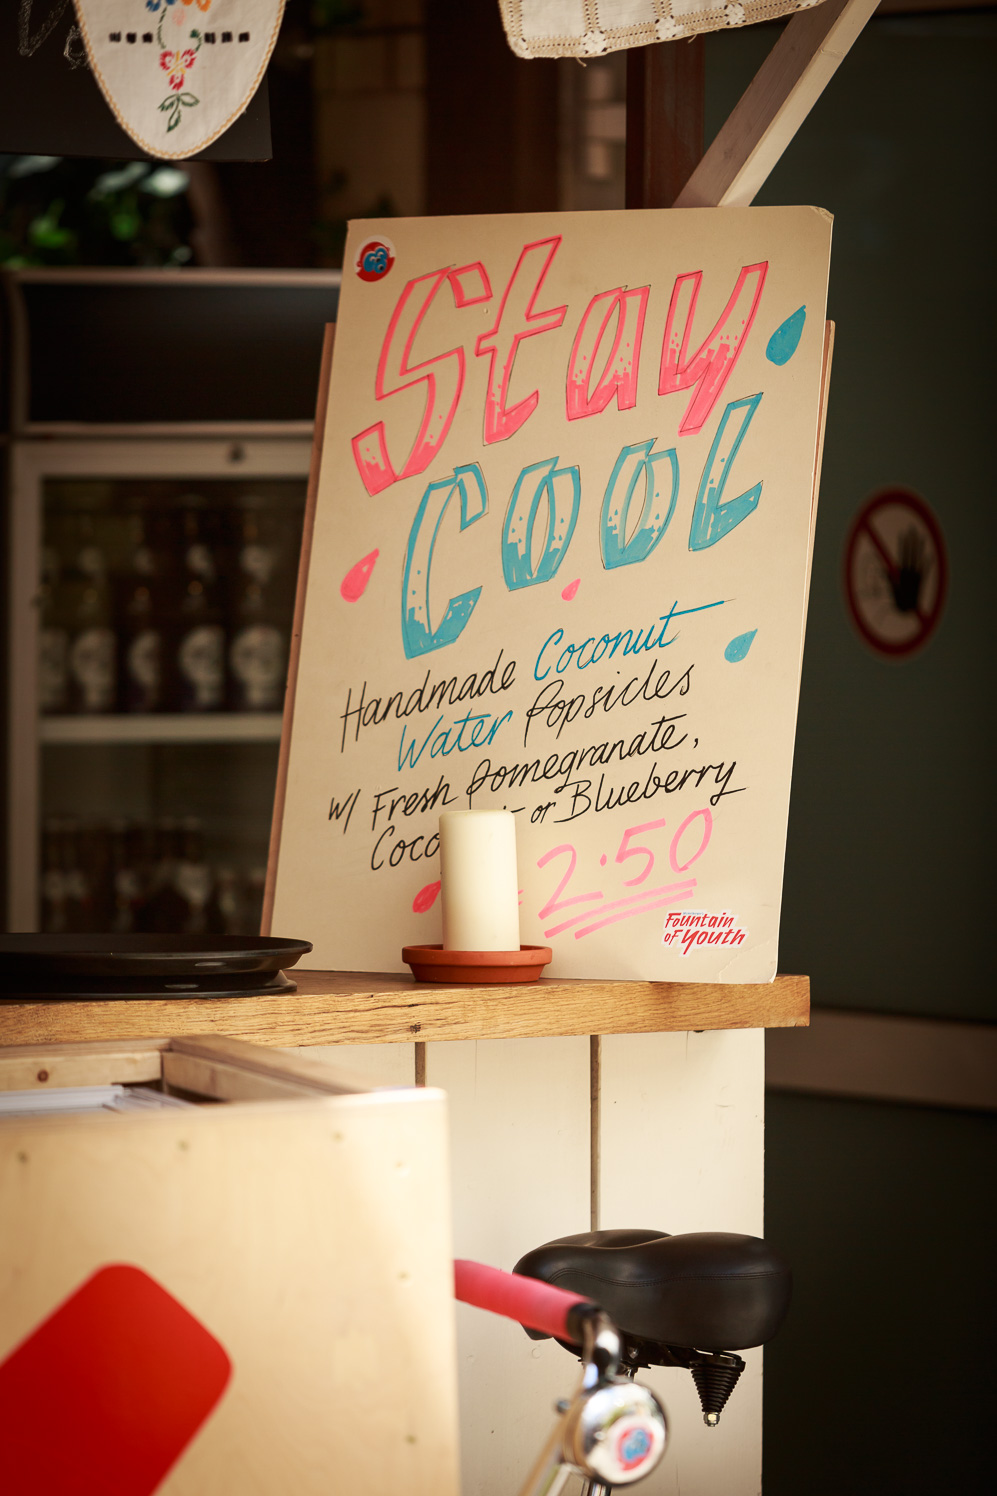 Stay
Cool
Handmade Coconut
Water Popsicles
w/ Fresh Pomegranate,
or Blueberry
2.50
Fountain
of Youth